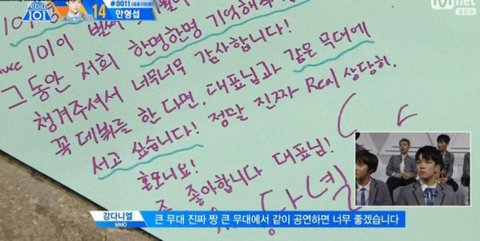 101
14
#0011
안형섭
Mnet
101이 벌써
그동안 저희 한명한명
챙겨주셔서 너무너무 감사합니다!
꼭 데뷔를 한 다면, 대표님과 같은 무대에
서고 싶습니다! 정말 진짜 Real 상당히.
좋아합니다 대표님!
강다니엘
MMO
큰 무대 진짜 짱 큰 무대에서 같이 공연하면 너무 좋겠습니다